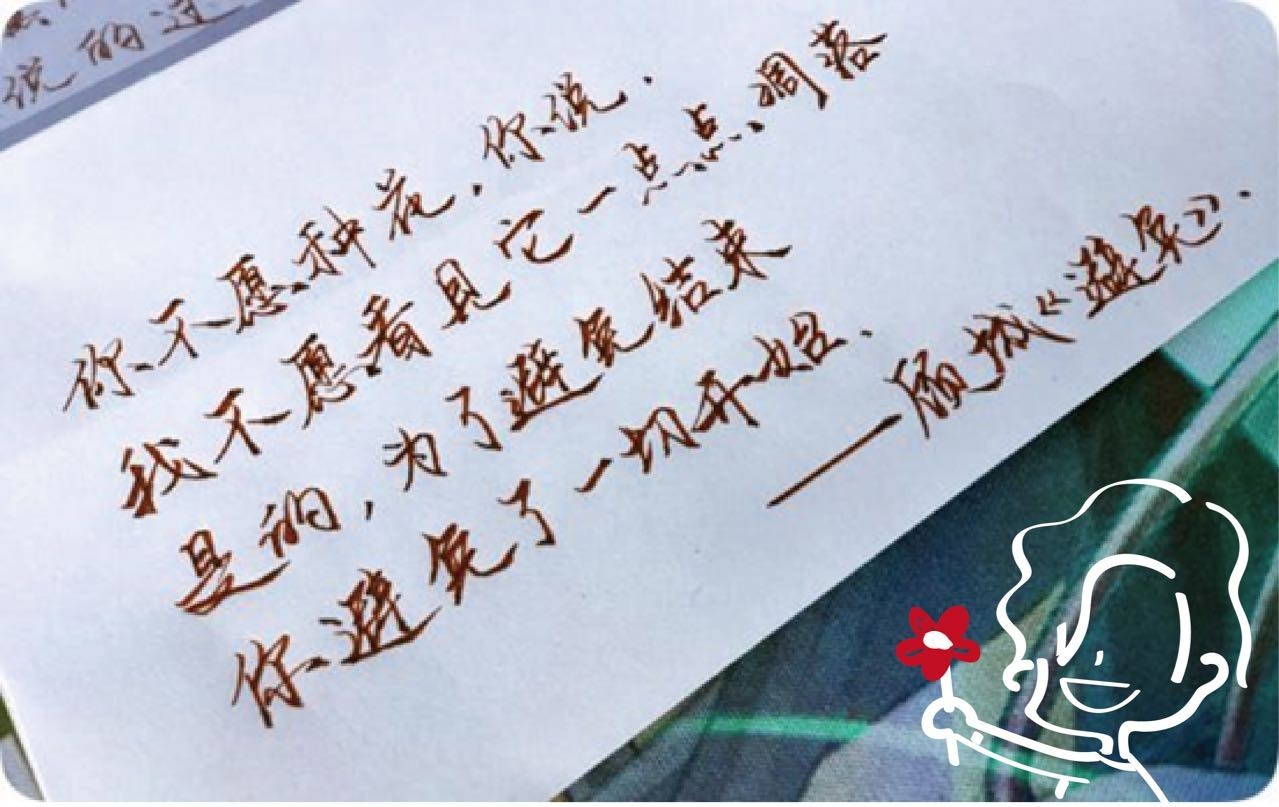 说的过
你不愿种花，你说．
我不愿看见它一点点凋落
是的，为了避免结束
你避免了一切开始．
——顾城《避免》．